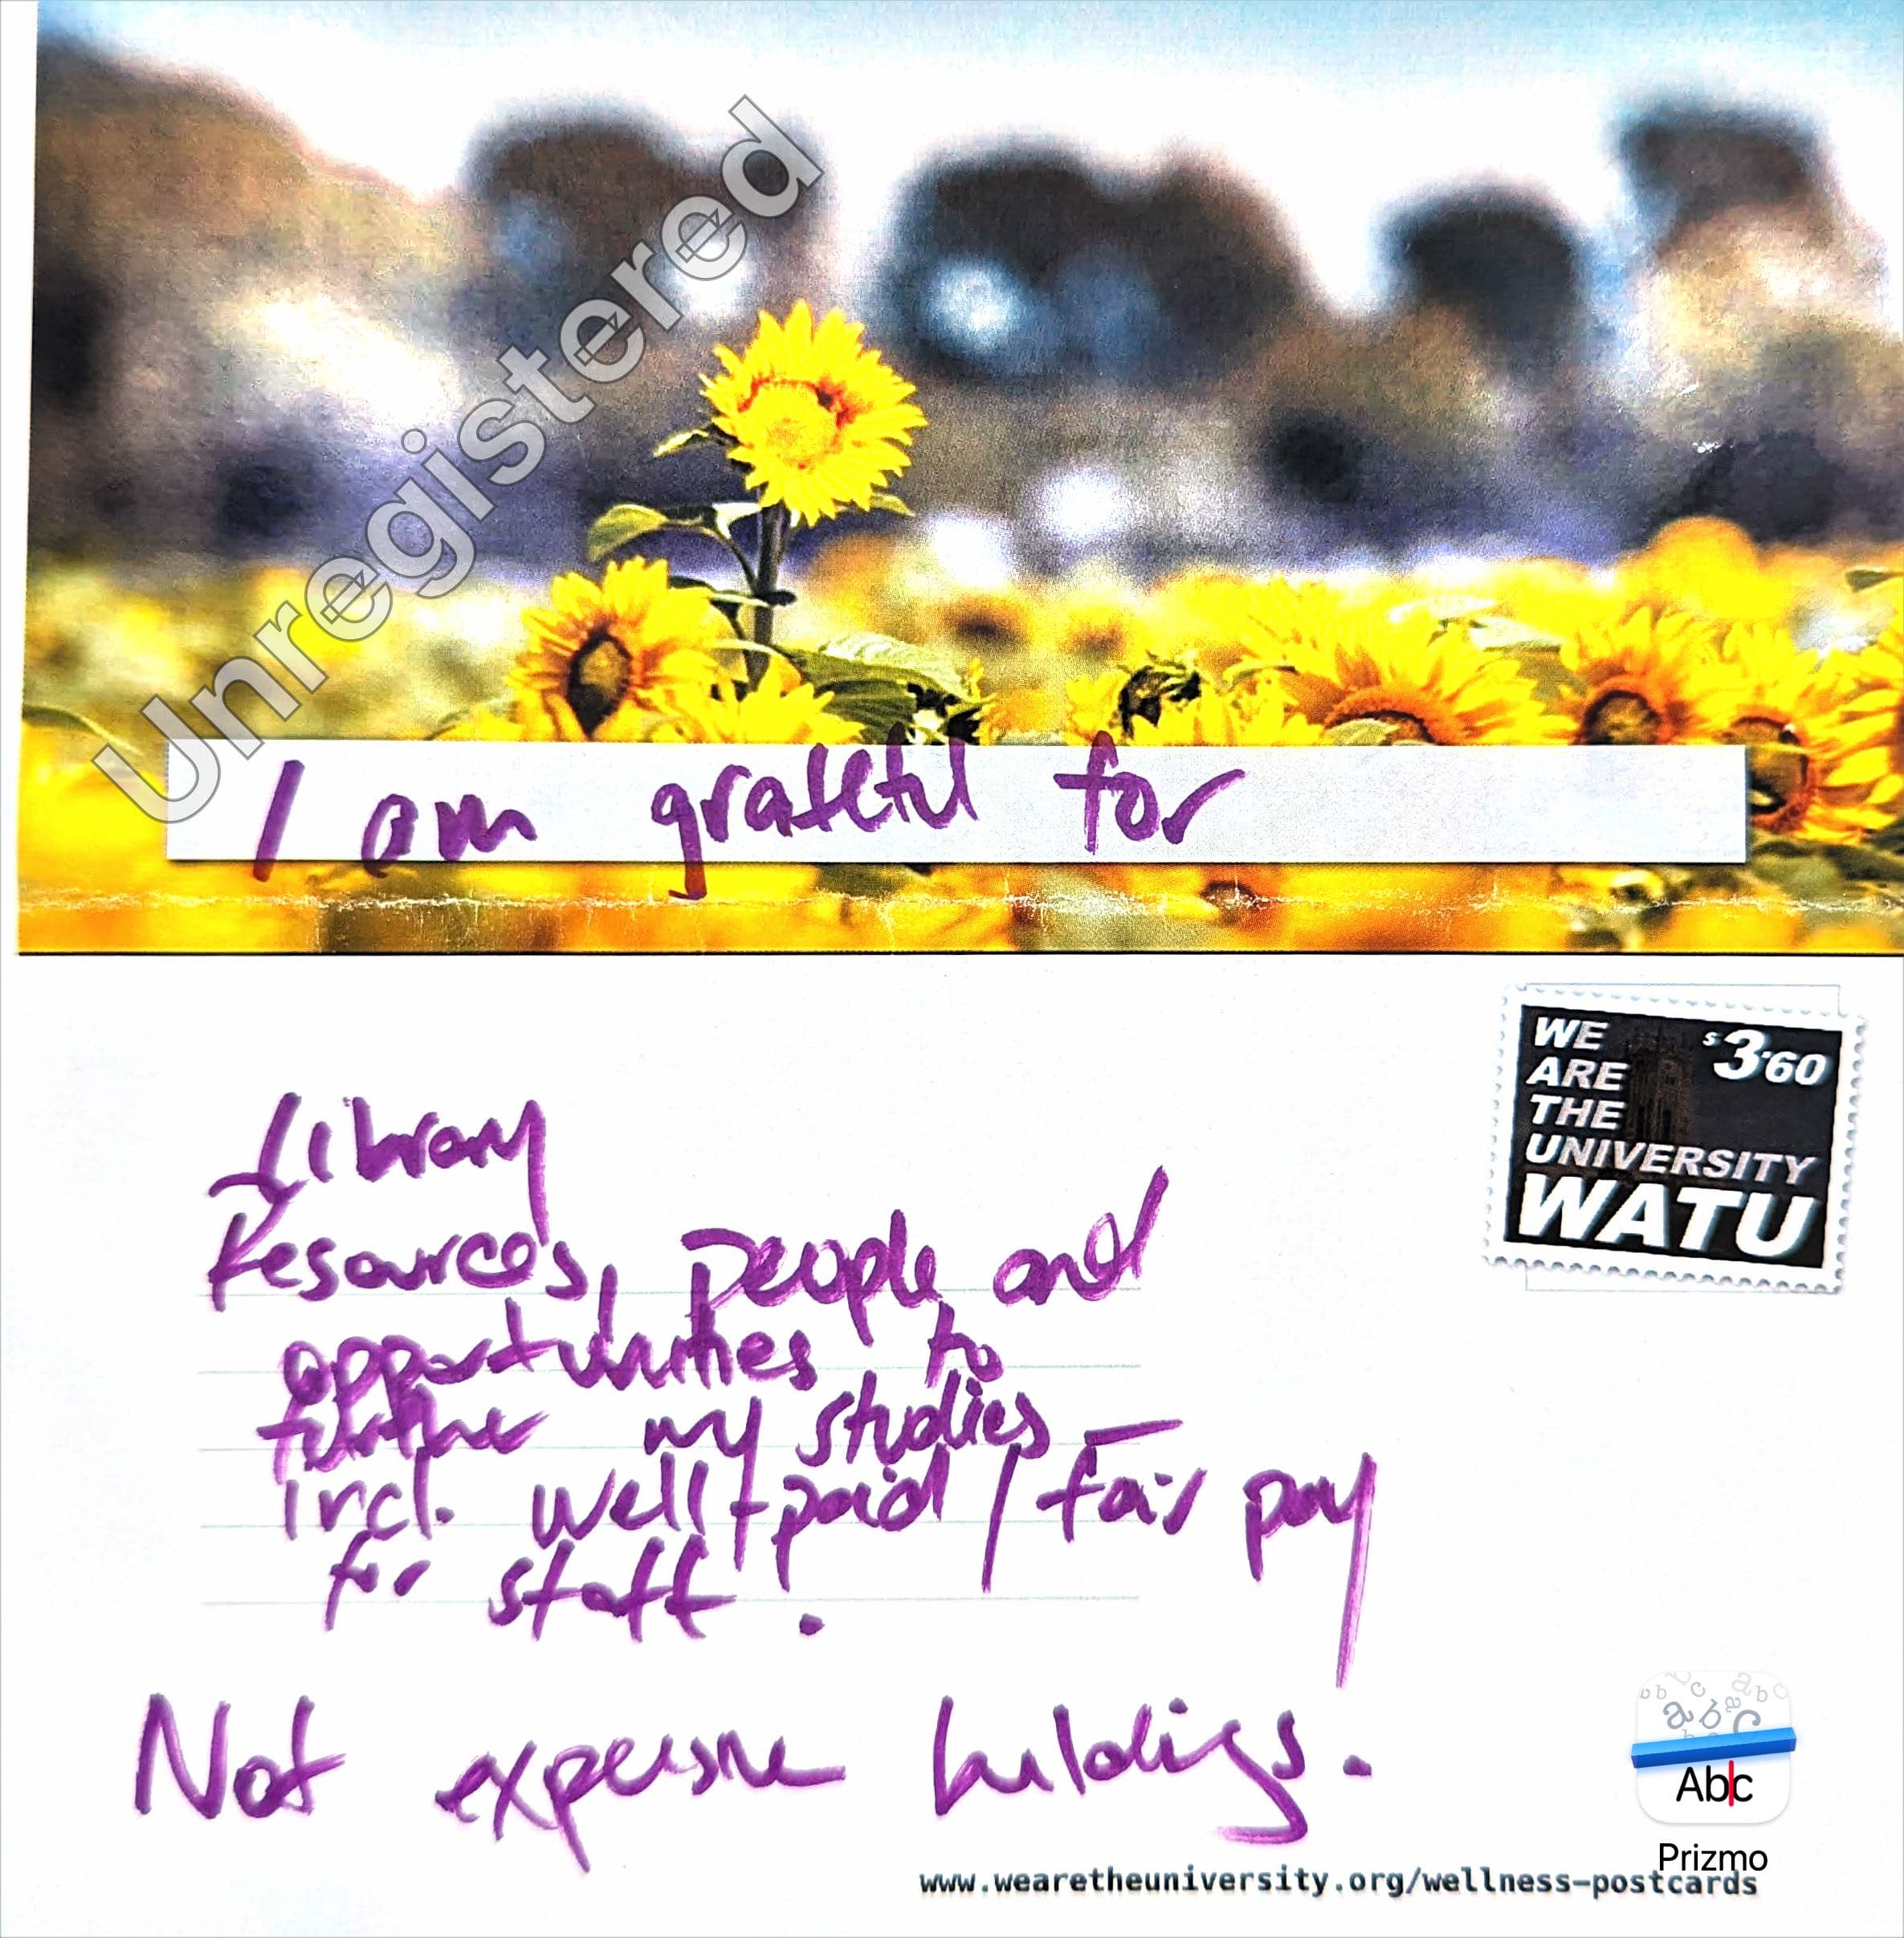 Unregistered
I am grateful for
WE
ARE
THE
UNIVERSITY
WATU
$3.60
Library
Resources, people and
opportunities to
further my studies —
incl. well-paid / fair pay
for staff.
Not expensive buildings.
abc
Abc
Prizmo
www.wearetheuniversity.org/wellness-postcards